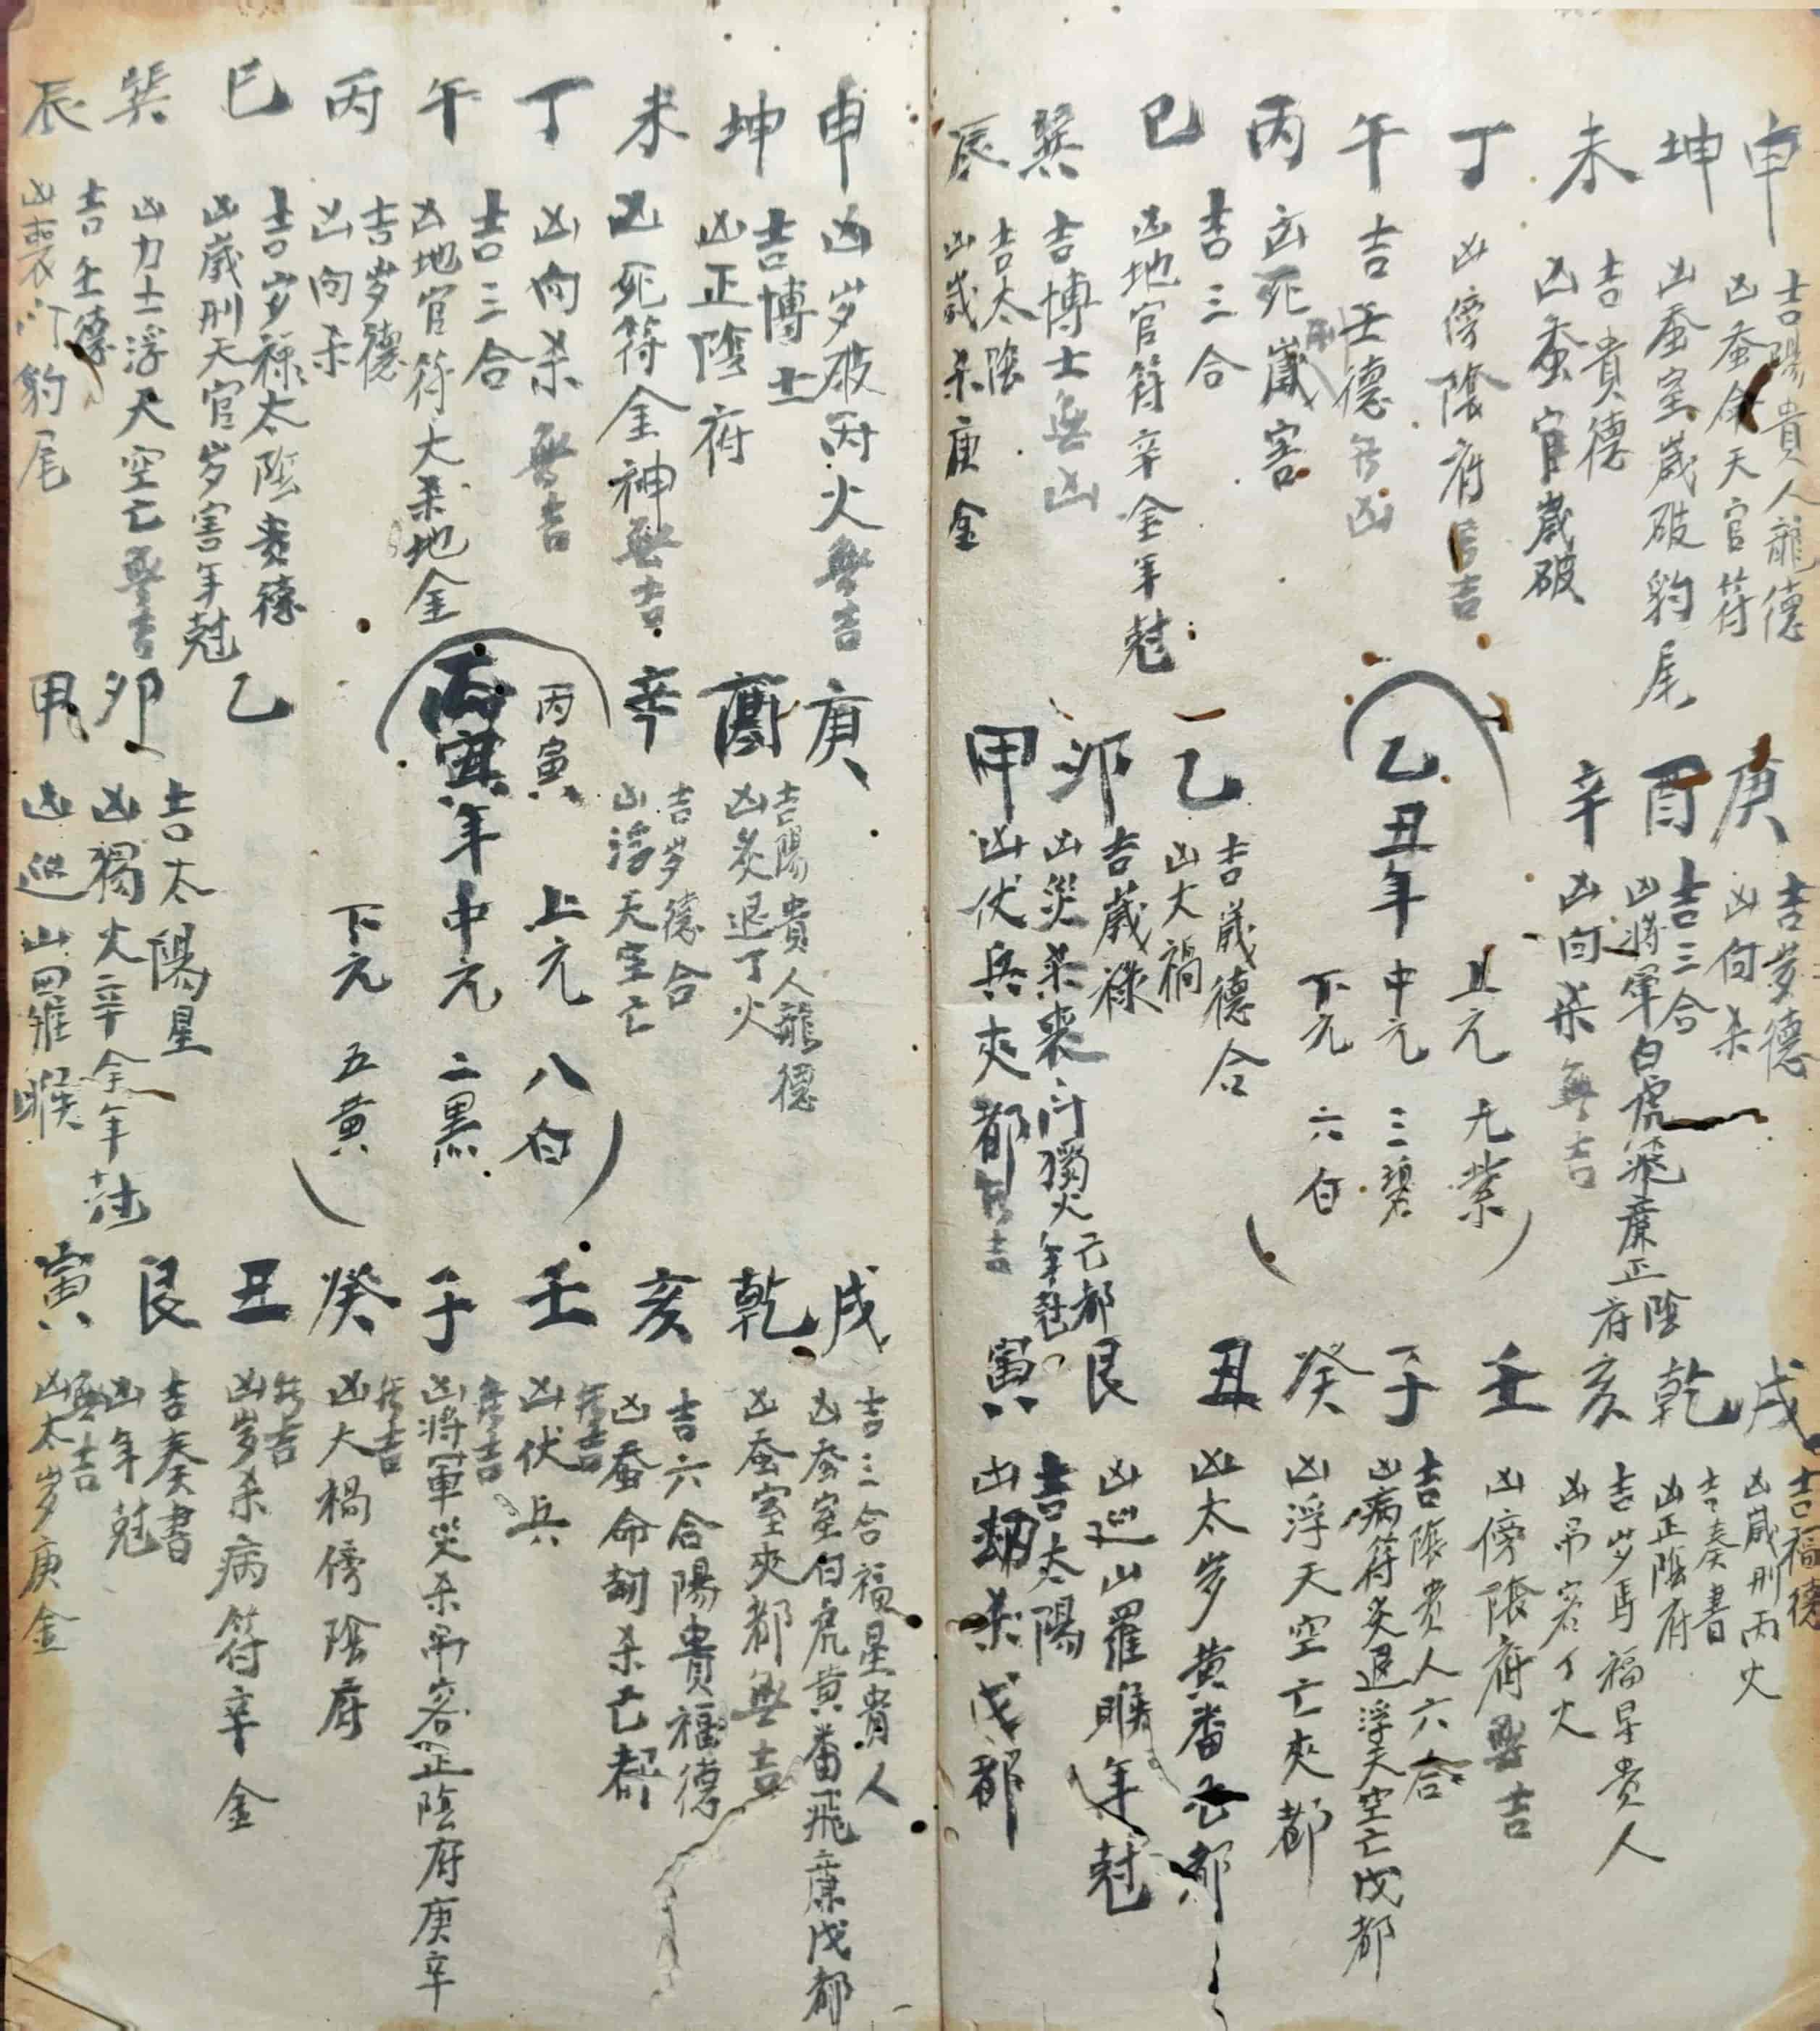 申
吉陽貴人龍德
凶蚕命天官符
坤
凶蚕室歲破豹尾
未
吉貴德
凶蚕官歲破
丁
凶傍陰府無吉
午
吉壬德無凶
丙
凶死歲害
巳
吉三合
凶地官符辛金年尅
巽
吉博士無凶
辰
吉太陰
凶歲杀庚金
庚
吉岁德
凶向杀
酉
吉三合
凶將軍白虎飛廉正陰府
辛
凶向杀無吉
乙丑年
上元 九紫
中元 三碧
下元 六白
乙
吉歲德合
凶大禍
卯
吉歲祿
凶災杀喪门獨火年尅
己都
甲
凶伏兵夾都無吉
戌
吉福德
凶歲刑丙火
乾
吉奏書
凶正陰府
亥
吉岁馬福星贵人
凶吊客丁火
壬
凶傍陰府無吉
子
吉陰贵人六合
凶病符炙退浮天空亡戊都
癸
凶浮天空亡夾都
丑
凶太岁黄番己都
艮
凶巡山羅睺年尅
寅
吉太陽
凶劫杀戊都
申
凶岁破丙火無吉
坤
吉博士
凶正陰府
未
凶死符金神無吉
丁
凶向杀無吉
午
吉三合
凶地官符大杀地金
丙
吉岁德
凶向杀
巳
吉岁禄太陰贵德
凶歲刑天官岁害年尅
巽
凶力士浮天空亡無吉
辰
吉壬德
凶喪门豹尾
庚
酉
吉陽貴人龍德
凶炙退丁火
辛
吉岁德合
凶浮天空亡
丙寅
上元 八白
丙寅年中元 二黑
下元 五黄
乙
卯
吉太陽星
凶獨火辛金年
甲
凶巡山羅睺
戌
吉三合福星貴人
凶蚕室白虎黄番飛廉戊都
乾
凶蚕室夾都無吉
亥
吉六合陽貴福德
凶蚕命劫杀己都
壬
無吉
凶伏兵
子
無吉
凶將軍災杀吊客正陰府庚辛
癸
無吉
凶大禍傍陰府
丑
無吉
凶岁杀病符辛金
艮
吉奏書
凶年尅
寅
無吉
凶太岁庚金